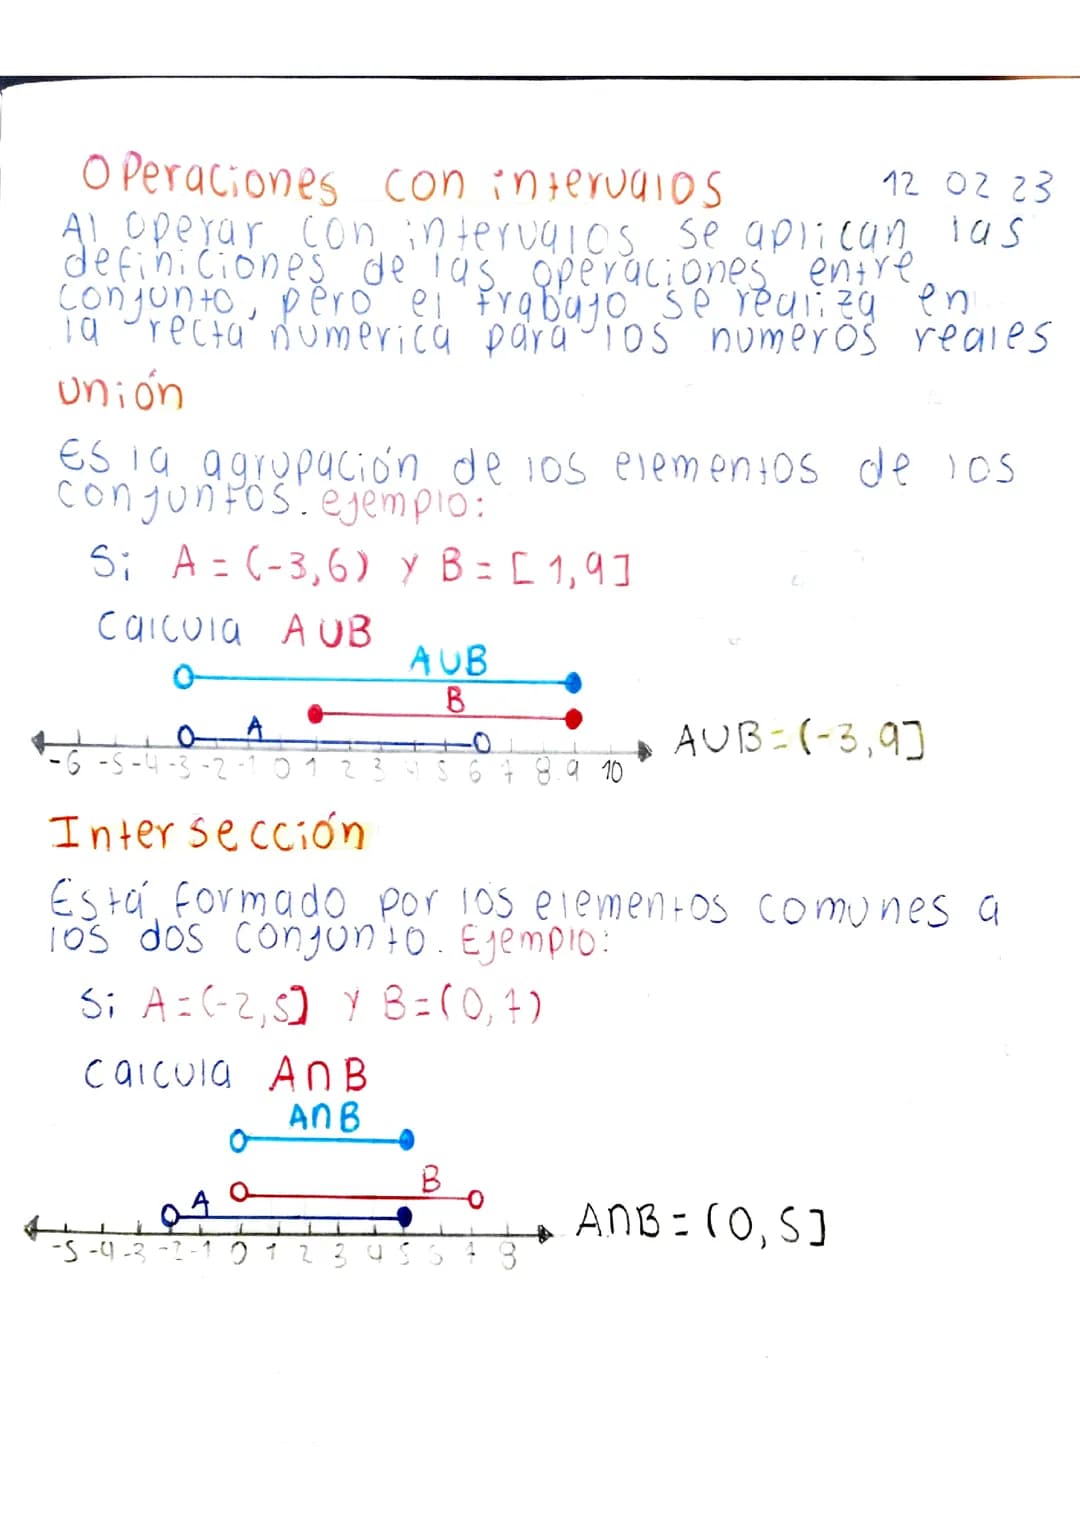 Operaciones con intervalos 12 02 23
Al operar con intervalos se aplican las
definiciones de las operaciones entre
conjunto, pero el trabajo se realiza en
la recta numerica para los numeros reales
unión
Es la agrupación de los elementos de los
conjuntos. ejemplo:
Si A = (-3,6) y B = [1,9]
Calcula A∪B
A∪B
B
A
A∪B=(-3,9]
-6 -5 -4 -3 -2 -1 0 1 2 3 4 5 6 7 8 9 10
Intersección
Está formado por los elementos comunes a
los dos conjunto. Ejemplo:
Si A=(-2,5] y B=(0,7)
Calcula A∩B
A∩B
B
A
A∩B=(0,5]
-5 -4 -3 -2 -1 0 1 2 3 4 5 6 7 8